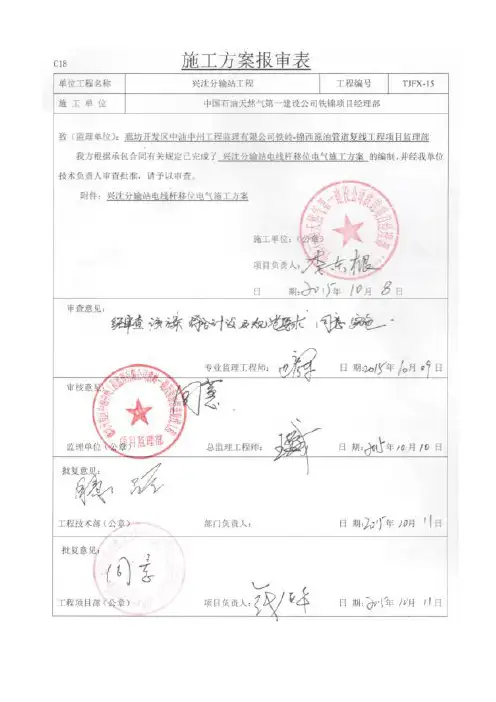 C18
施工方案报审表
单位工程名称 兴沈分输站工程 工程编号 TJFX-15
施 工 单 位 中国石油天然气第一建设公司铁锦项目经理部
致（监理单位）：廊坊开发区中油中州工程监理有限公司铁岭-锦西原油管道复线工程项目监理部
我方根据承包合同有关规定已完成了 兴沈分输站电线杆移位电气施工方案 的编制，并经我单位
技术负责人审查批准，请予以审查。
附件：兴沈分输站电线杆移位电气施工方案
施工单位：（公章）
项目负责人：李东根
日 期：2015年10月8日
审查意见：
经审查 同意
专业监理工程师： 日 期：2015年10月09日
审核意见：
同意
项目监理部
监理单位（公章） 总监理工程师： 日 期：2015年10月10日
批复意见：
工程技术部（公章） 部门负责人： 日 期：2015年10月11日
批复意见：
同意
工程项目部（公章） 项目负责人： 日 期：2015年10月11日